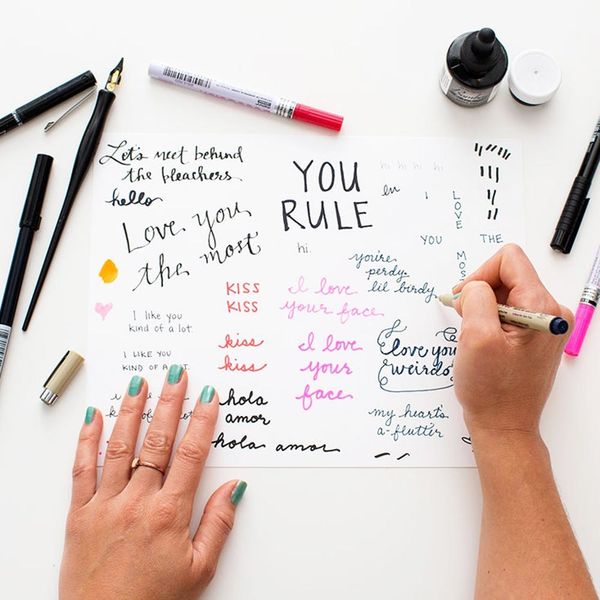 Let's meet behind
the bleachers
hello
Love you
the most
I like you
kind of a lot.
I LIKE YOU
KIND OF A LOT.
kind of a lot
YOU
RULE
hi.
KISS
KISS
kiss
kiss
hola
amor
hola amor
I love
your face
I love
your
face
hi hi hi hi
en
I
LOVE
YOU
THE
MOS
you're
perdy,
lil birdy
love you
weirdo
my heart's
a-flutter